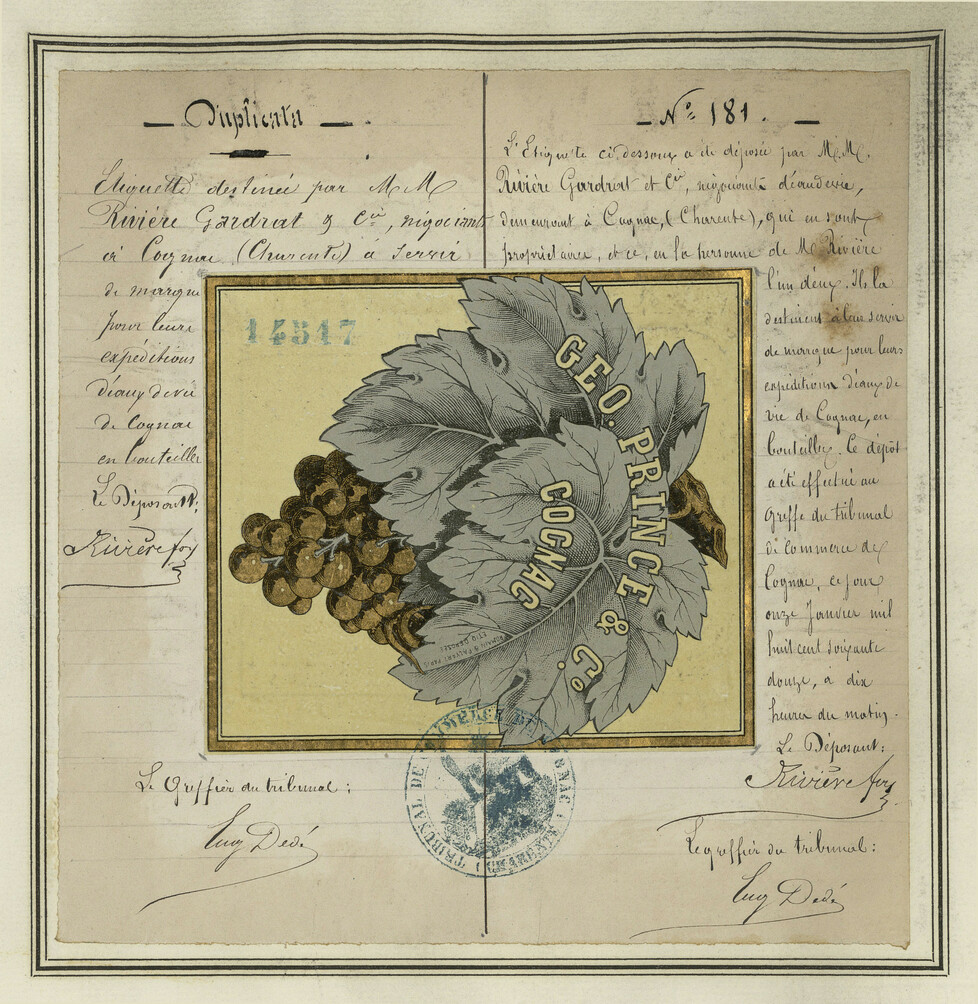 Duplicata
Etiquette destinée par M M
Rivière Gardrat & Cie, négociants
à Cognac (Charente) à servir
de marque
pour leurs
expéditions
d'eaux de vie
de Cognac
en bouteilles
Le Déposant:
Rivière
Le Greffier du tribunal:
Eug Dedé
No 181.
L'Etiquete ci-dessous a été déposée par M.M.
Rivière Gardrat et Cie, négociants d'eau de vie,
demeurant à Cognac, (Charente), qui en sont
propriétaires, et ce, en la personne de M Rivière
l'un d'eux. Ils la
destinent à leur servir
de marque pour leurs
expéditions d'eaux de
vie de Cognac, en
bouteilles. Ce dépôt
a été effectué au
greffe du tribunal
de commerce de
Cognac, ce jour
onze Janvier mil
huit cent soixante
douze, à dix
heures du matin.
Le Déposant:
Rivière
Le greffier du tribunal:
Eug Dedé
14517
GEO. PRINCE & Co.
COGNAC
PARIS
TRIBUNAL DE COMMERCE DE COGNAC